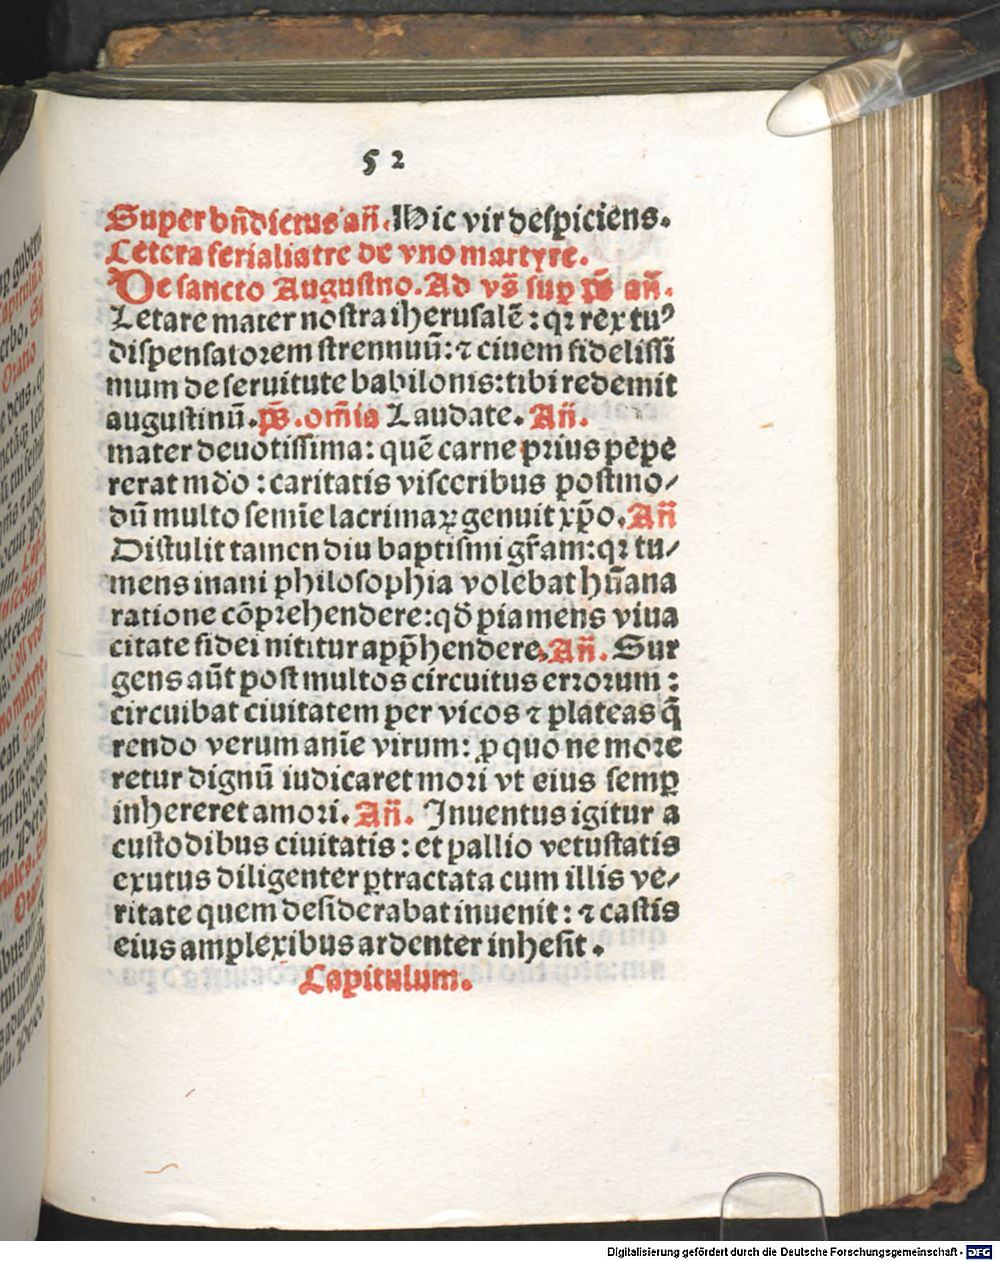 52
Super bn̄dictus an̄. Hic vir despiciens.
Cetera ferialia tre de vno martyre.
De sancto Augustino. Ad vs̄ suꝑ ps̄ an̄.
Letare mater nostra iherusalē : qꝛ rex tuꝰ
dispensatorem strennuū: ⁊ ciuem fidelissi
mum de seruitute babilonis: tibi redemit
augustinū. ps̄. om̄ia Laudate. An̄.
mater deuotissima: quē carne prius pepe
rerat mdo : caritatis visceribus postmo/
dū multo semīe lacrimaꝝ genuit xp̄o. An̄
Distulit tamen diu baptismi gr̄am: qꝛ tu/
mens inani philosophia volebat hūana
ratione cōprehendere: qd̄ pia mens viua
citate fidei nititur app̄hendere. An̄. Sur
gens aūt post multos circuitus errorum :
circuibat ciuitatem per vicos ⁊ plateas q̄
rendo verum anīe virum: ꝓ quo ne more
retur dignū iudicaret mori vt eius semꝑ
inhereret amori. An̄. Inuentus igitur a
custodibus ciuitatis : et pallio vetustatis
exutus diligenter ꝑtractata cum illis ve/
ritate quem desiderabat inuenit : ⁊ castis
eius amplexibus ardenter inhesit .
Capitulum.
Digitalisierung gefördert durch die Deutsche Forschungsgemeinschaft - DFG